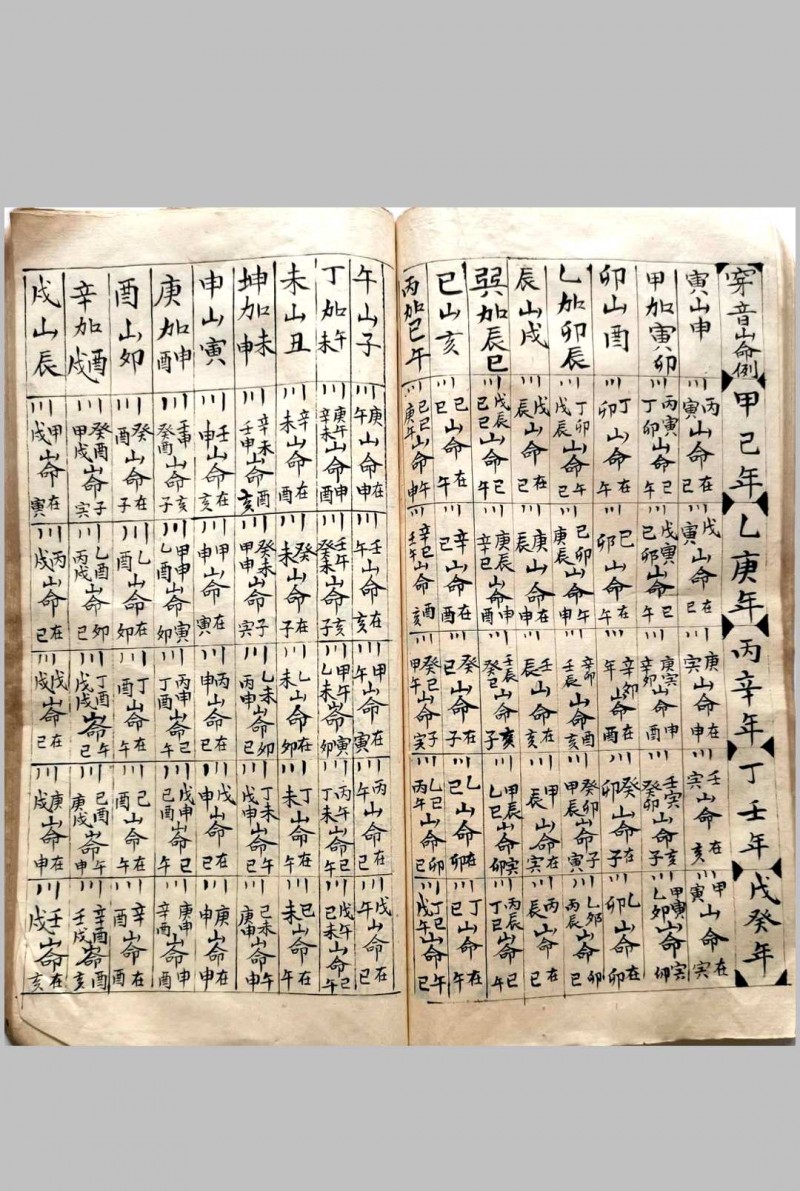 穿音山命例 甲己年 乙庚年 丙辛年 丁壬年 戊癸年
寅山申 川丙寅山命在巳 川戊寅山命在巳 川庚寅山命在申 川壬寅山命在亥 川甲寅山命在寅
甲加寅卯 川丙寅丁卯山命巳午 川戊寅己卯山命巳午 川庚寅辛卯山命申酉 川壬寅癸卯山命亥子 川甲寅乙卯山命寅卯
卯山酉 川丁卯山命在午 川己卯山命在午 川辛卯山命在酉 川癸卯山命在子 川乙卯山命在卯
乙加卯辰 川丁卯戊辰山命午巳 川己卯庚辰山命午申 川辛卯壬辰山命酉亥 川癸卯甲辰山命子寅 川乙卯丙辰山命卯巳
辰山戌 川戊辰山命在巳 川庚辰山命在申 川壬辰山命在亥 川甲辰山命在寅 川丙辰山命在巳
巽加辰巳 川戊辰己巳山命巳午 川庚辰辛巳山命申酉 川壬辰癸巳山命亥子 川甲辰乙巳山命寅卯 川丙辰丁巳山命巳午
巳山亥 川己巳山命在午 川辛巳山命在酉 川癸巳山命在子 川乙巳山命在卯 川丁巳山命在午
丙加巳午 川己巳庚午山命午申 川辛巳壬午山命酉亥 川癸巳甲午山命子寅 川乙巳丙午山命卯巳 川丁巳戊午山命午巳
午山子 川庚午山命在申 川壬午山命在亥 川甲午山命在寅 川丙午山命在巳 川戊午山命在巳
丁加午未 川庚午辛未山命申酉 川壬午癸未山命亥子 川甲午乙未山命寅卯 川丙午丁未山命巳午 川戊午己未山命巳午
未山丑 川辛未山命在酉 川癸未山命在子 川乙未山命在卯 川丁未山命在午 川己未山命在午
坤加未申 川辛未壬申山命酉亥 川癸未甲申山命子寅 川乙未丙申山命卯巳 川丁未戊申山命午巳 川己未庚申山命午申
申山寅 川壬申山命在亥 川甲申山命在寅 川丙申山命在巳 川戊申山命在巳 川庚申山命在申
庚加申酉 川壬申癸酉山命亥子 川甲申乙酉山命寅卯 川丙申丁酉山命巳午 川戊申己酉山命巳午 川庚申辛酉山命申酉
酉山卯 川癸酉山命在子 川乙酉山命在卯 川丁酉山命在午 川己酉山命在午 川辛酉山命在酉
辛加酉戌 川癸酉甲戌山命子寅 川乙酉丙戌山命卯巳 川丁酉戊戌山命午巳 川己酉庚戌山命午申 川辛酉壬戌山命酉亥
戌山辰 川甲戌山命在寅 川丙戌山命在巳 川戊戌山命在巳 川庚戌山命在申 川壬戌山命在亥